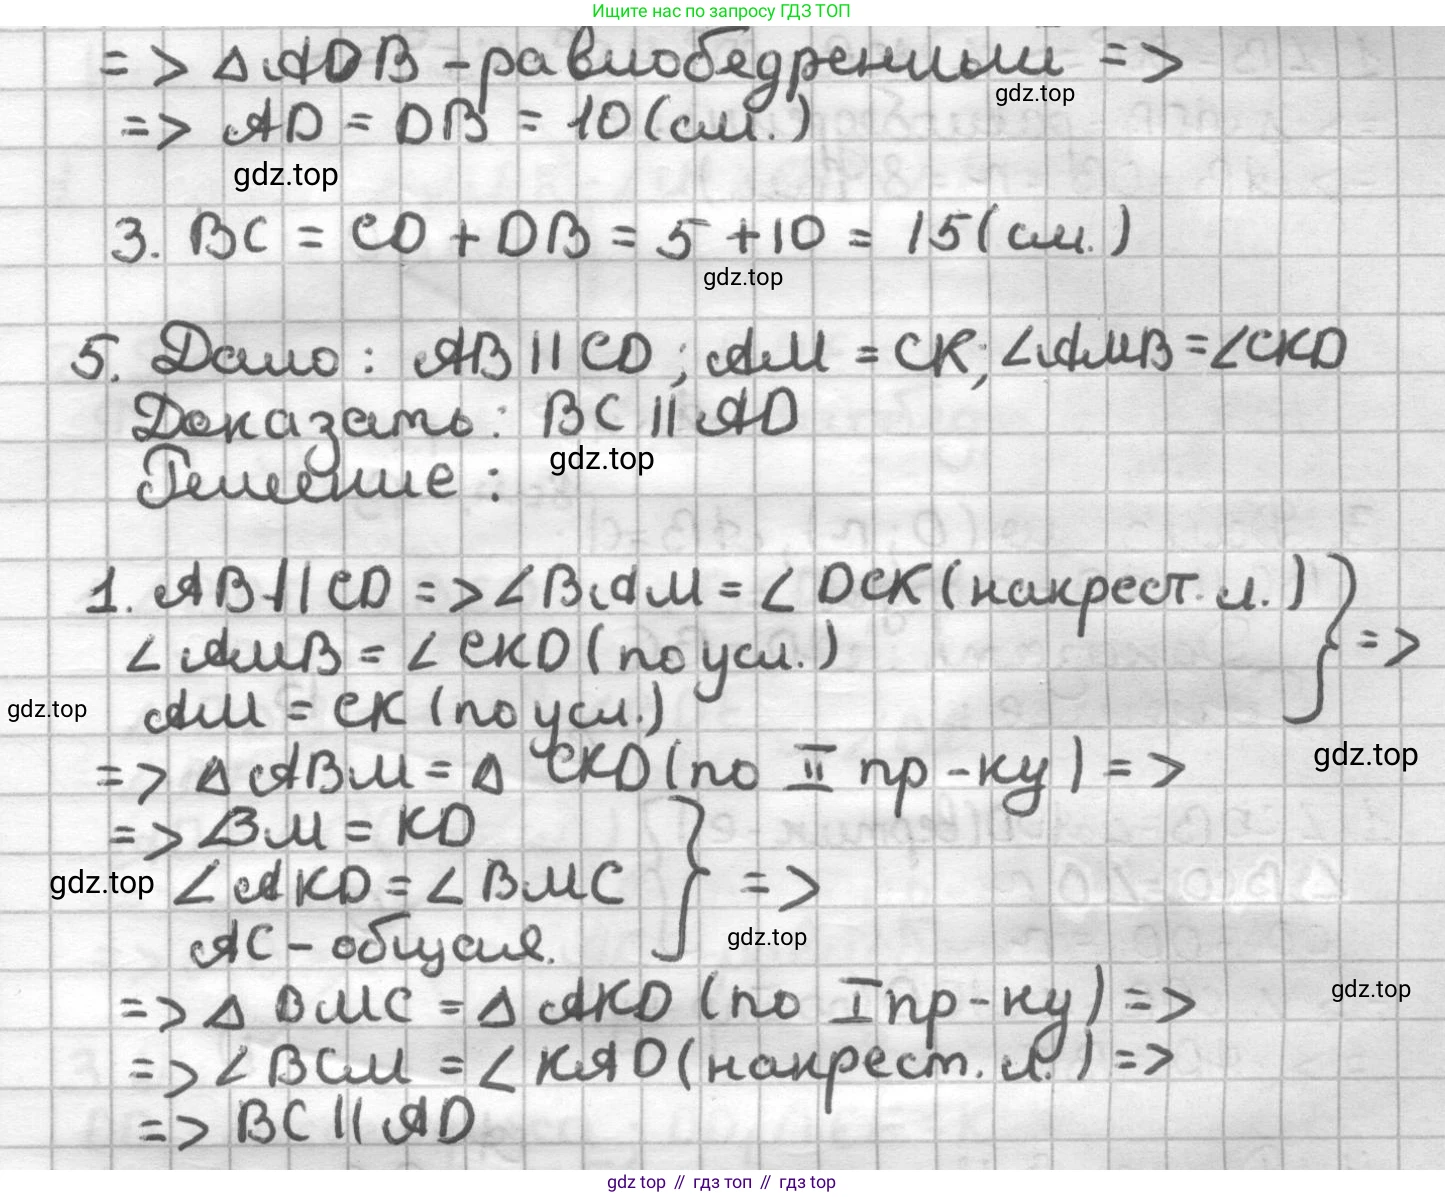 Ищите нас по запросу ГДЗ ТОП
=> △ADB - равнобедренный =>
gdz.top
=> AD = DB = 10 (см.)
gdz.top
3. BC = CD + DB = 5 + 10 = 15 (см.)
gdz.top
5. Дано: AB || CD; AM = CK; ∠AMB = ∠CKD
Доказать: BC || AD
gdz.top
Решение:
1. AB || CD => ∠BAM = ∠DCK (накрест. л.)
∠AMB = ∠CKD (по усл.) } =>
gdz.top
AM = CK (по усл.)
gdz.top
=> △ABM = △CKD (по II пр-ку) =>
=> ∠BM = KD
gdz.top
∠AKD = ∠BMC } =>
AC - общая.
gdz.top
gdz.top
=> △BMC = △AKD (по I пр-ку) =>
=> ∠BCM = ∠KAD (накрест. л.) =>
=> BC || AD
gdz top // гдз топ // гдз top